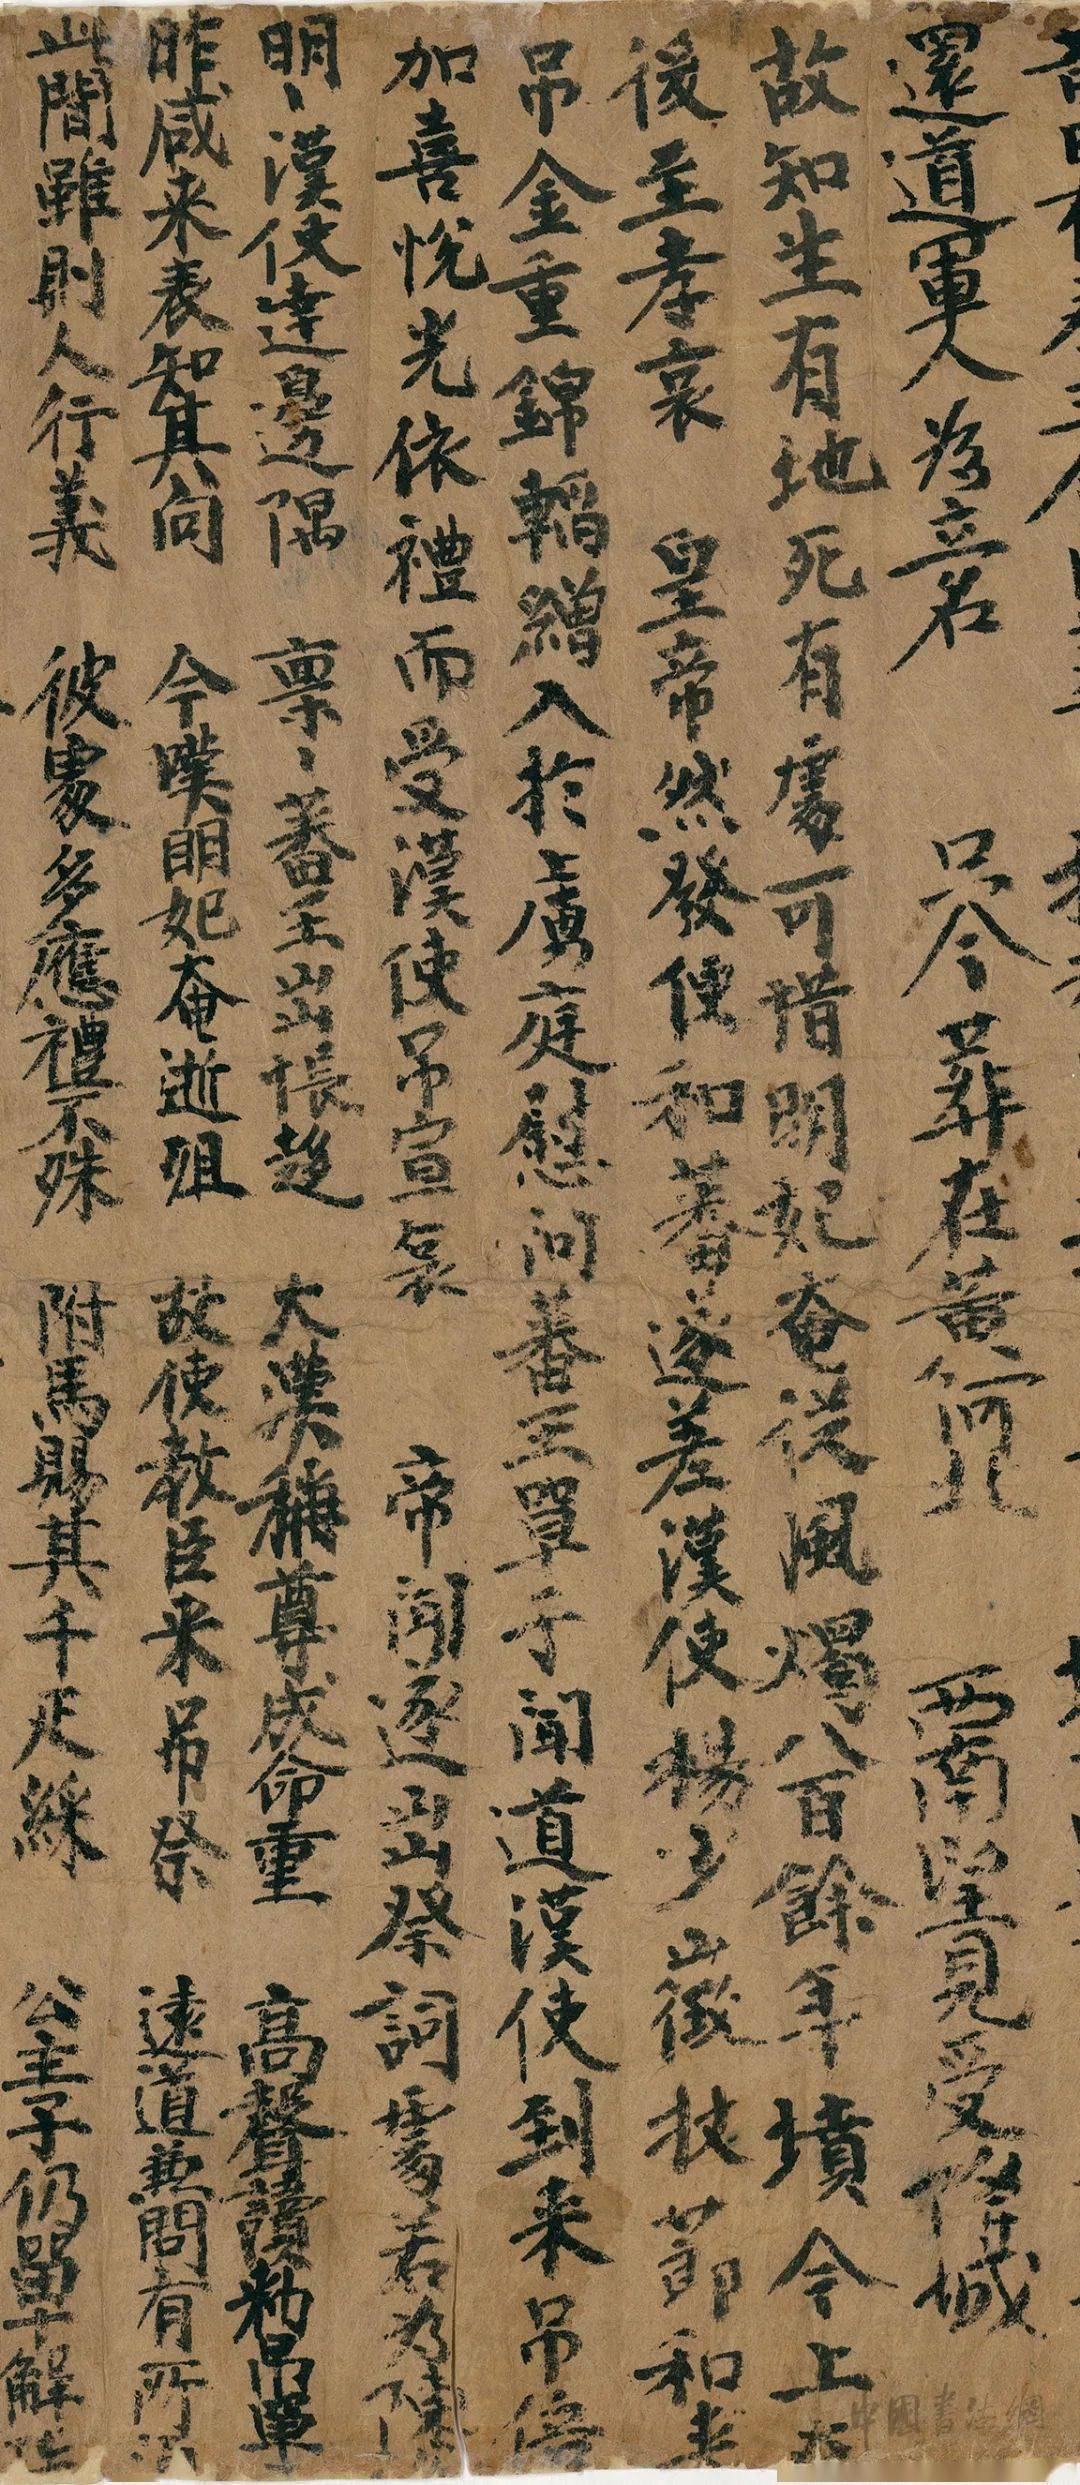 還道軍人為立名 只今葬在黃河北 西南望見受降城
故知生有地死有處可惜明妃奄從風燭八百餘年墳今上
後至孝哀 皇帝然發使和蕃遂差漢使楊少徵杖節和来
吊金重錦韜繒入於虜庭慰問蕃王單于聞道漢使到来吊倍
加喜悅光依禮而受漢使吊宣哀 帝聞遂出祭詞處若為陳
明〻漢使達邊隅 稟〻蕃王出帳趍 大漢稱尊成命重 高聲讀勑吊單
昨咸来表知其向 今嘆明妃奄逝殂 故使教臣来吊祭 遠道兼問有所
此間雖則人行義 彼處多應禮不殊 附馬賜其千疋綵 公主子仍單于解
中國書法網